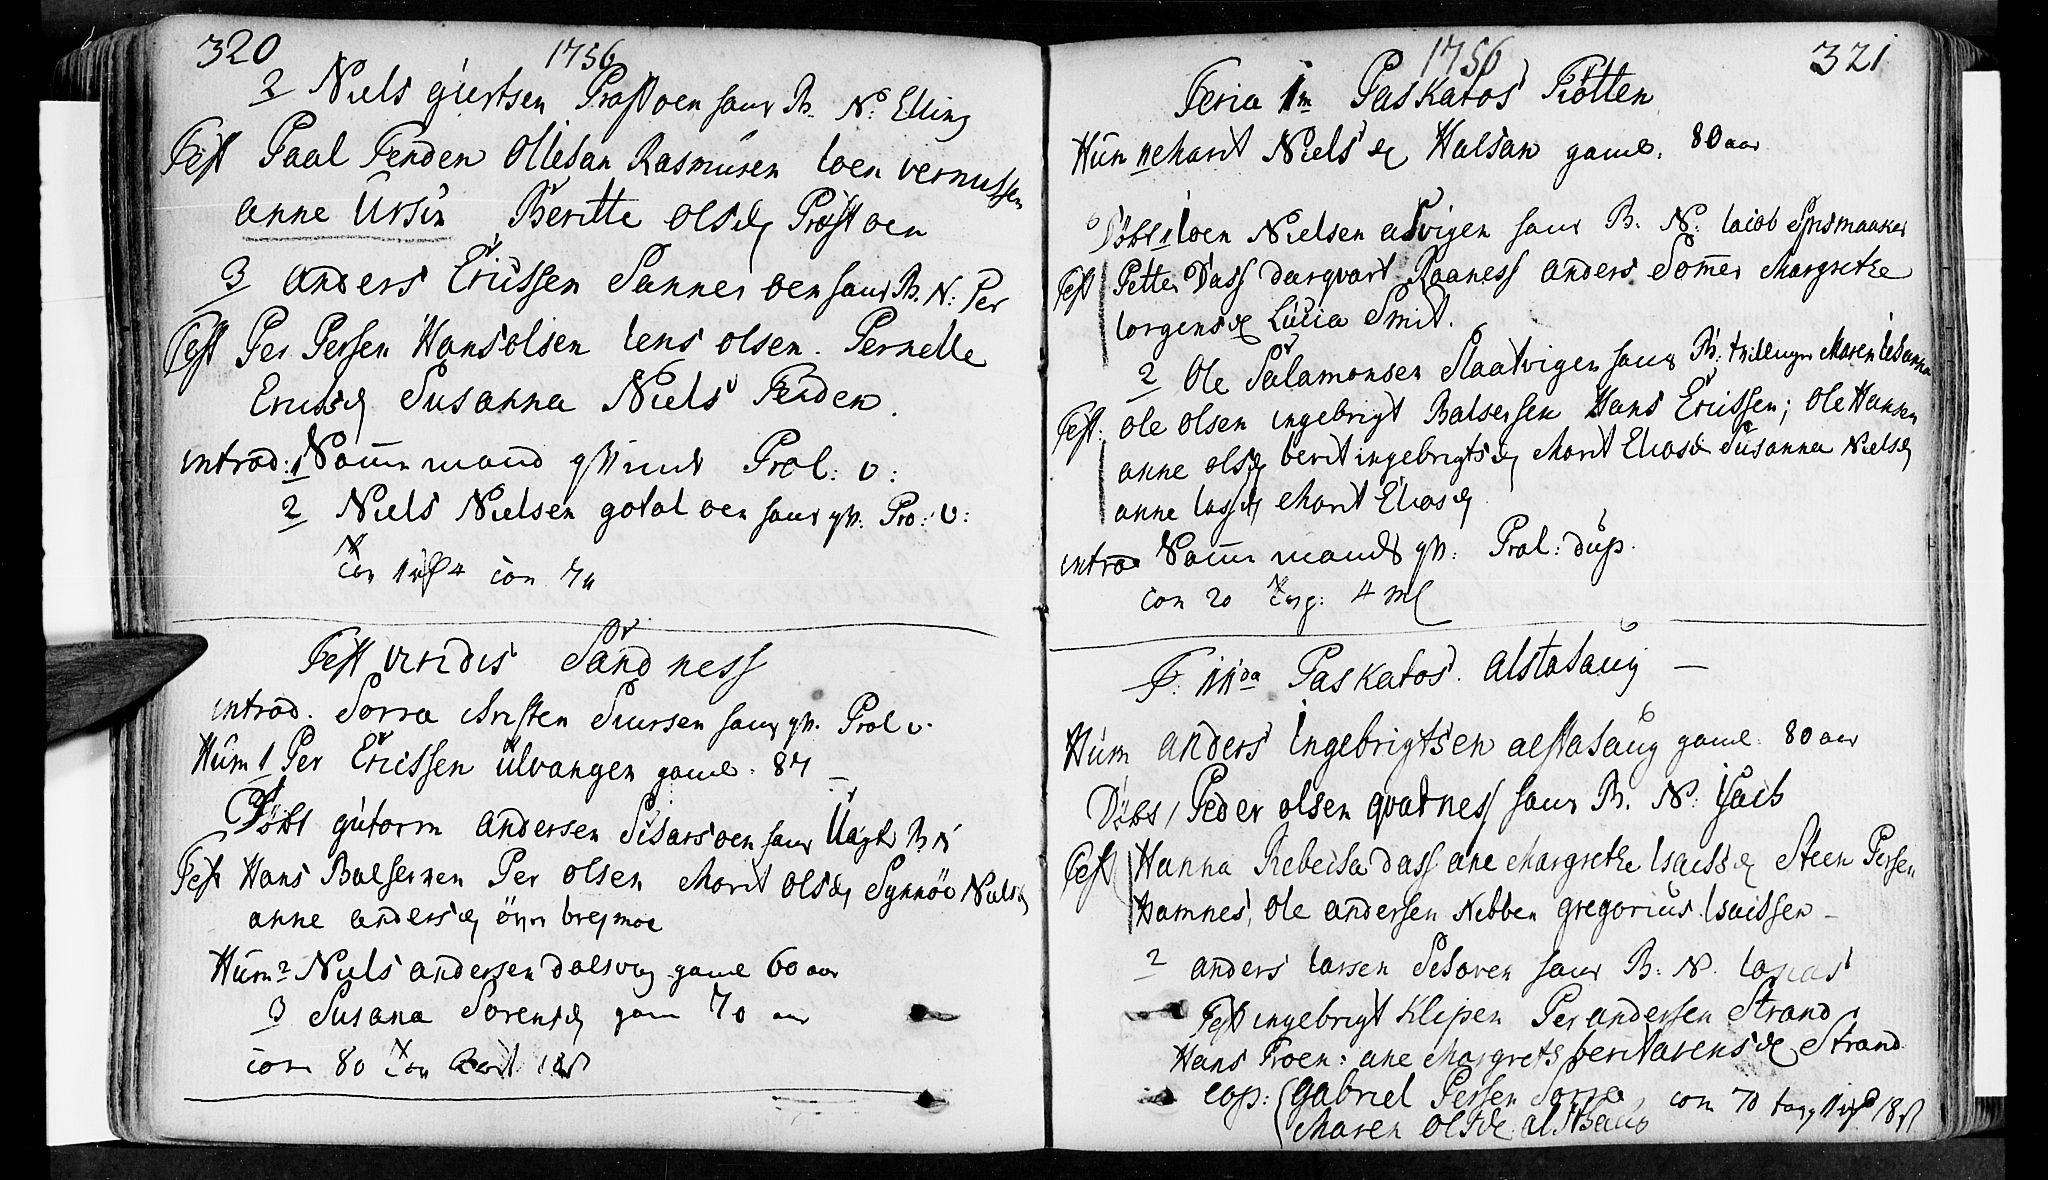 320
1756
2 Niels giertsen Prastoen saur B. N: Elling
Test Paal Fenden Ollesan Rasmusen loen vernussen
anne Ursin Beritte olsd Prastoen
3 anders Erissen Sannes oen saur B. N: Per
Test Per Persen Hans olsen lens olsen. Pernelle
Susanna Niels Fenden.
introd: 1 mand Prol: v:
2 Niels Nielsen gotal oen saur qv: Pro: v:
con 74
Fest viridis Sandness
introd. Sorra christen Siursen saur qv. Prol v.
Hum 1 Per Erissen ulvangen gaml. 87
Döbt gutorm andersen Sesarsoen saur B N
Test Hans Balsersen Per olsen Marit olsd Synnöe Nielsd
anne andersd brejmoe
Hum 2 Niels andersen gaml 60 aar
3 Susana Sorensd gam 70 aar
com 80
321
1756
Feria 1m Paskatos Tiötten
Hum Marit Nielsd Halsan gaml. 80 aar
Döbt 1 loen Nielsen saur B. N: lacob
Test Petter Dass darqvart Raaness anders Somer Margrethe
lorgensd Lucia Smit.
2 Ole Salamonsen Slaatvigen saur B: Maren
Test: ole olsen ingebrigt Balsersen Hans Erissen; Ole Hansen
anne olsd berit ingebrigtsd Marit Eliasd Susanna Nielsd
anne lassd Marit Eliasd
introd mands qv: Prol: dup.
com 20 4 ml
F. 11da Paskatos. alstahaug
Hum anders Ingebrigtsen alstahaug gaml: 80 aar
Döbt 1 Peder olsen qvatness saur B. N: Isach
Test Hanna Rebecka Dass ane Margrethe Isachsd Steen Persen
Hamnes, Ole andersen Nebben gregorius Isaissen
2 anders larsen saur B: N.
Test ingebrigt Klipen Per andersen Strand
Hans Troen: ane Margrete berit arensd Strand
cop: Gabriel Persen Sorra com 70
Maren olsd alstahaug